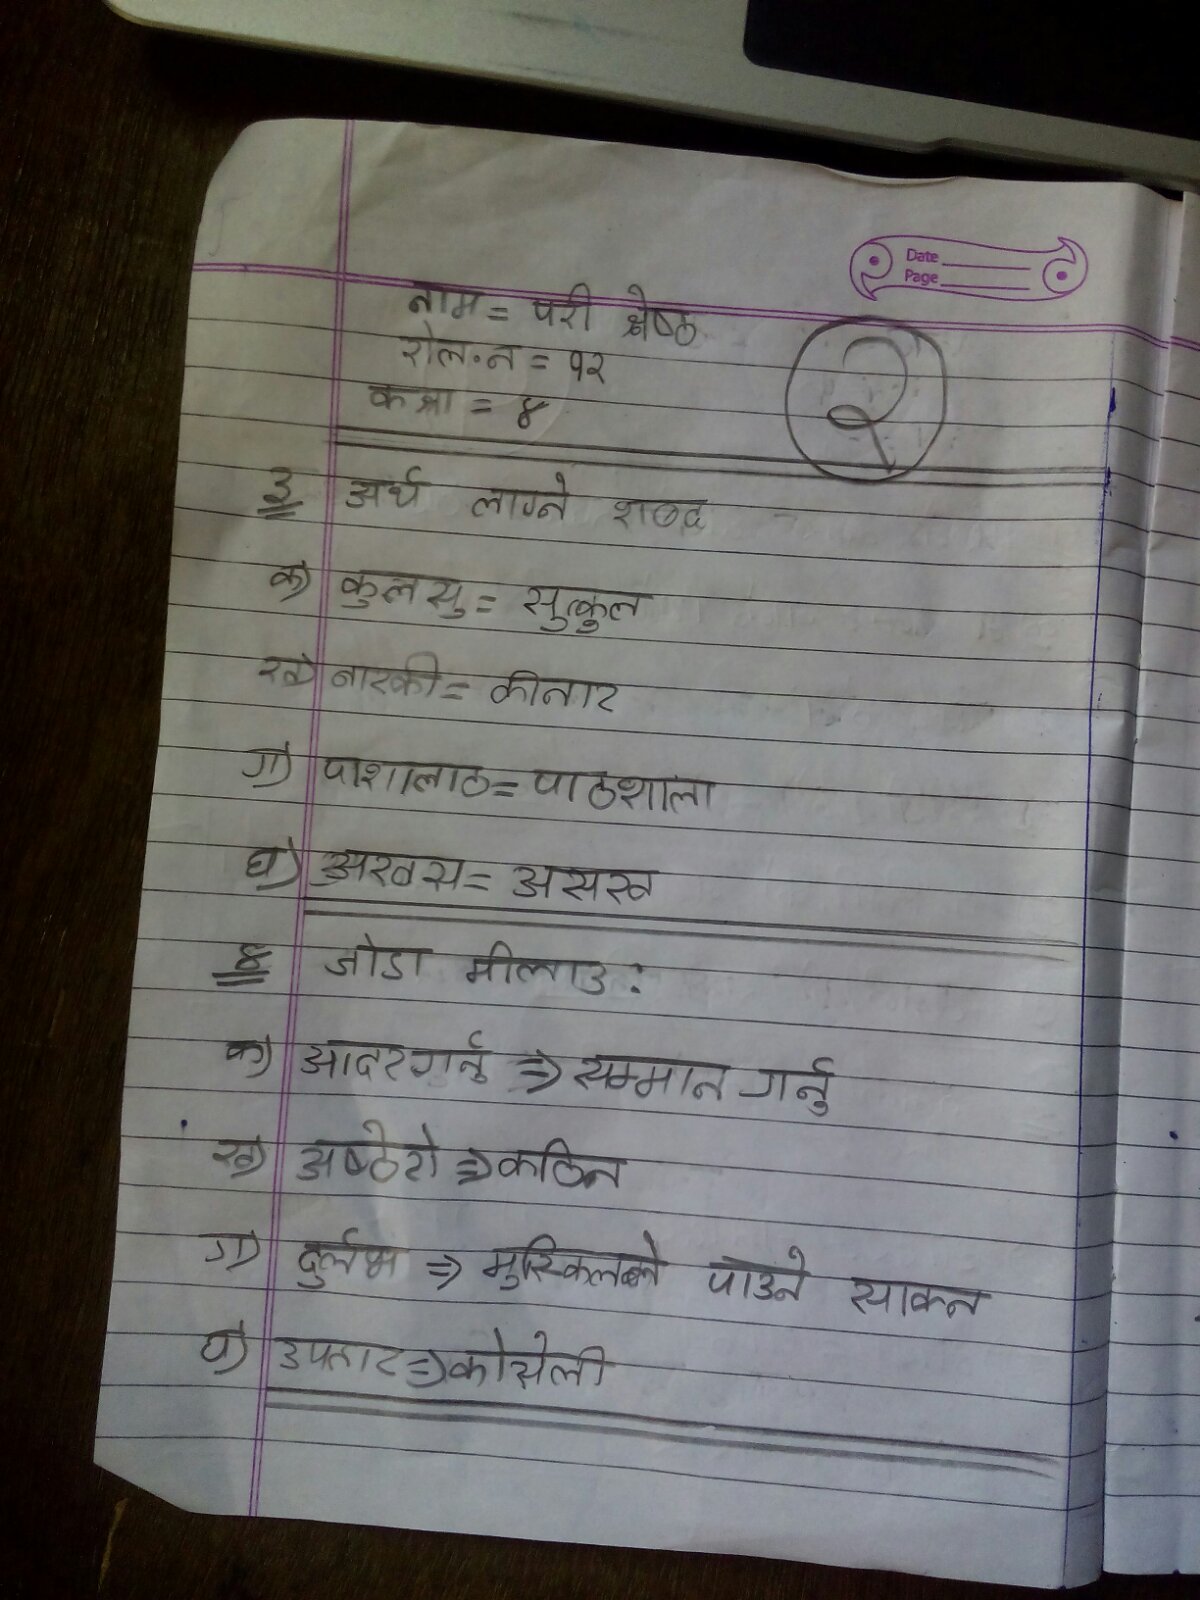 Date
Page
नाम = परी श्रेष्ठ
रोल.न = १२
कक्षा = ४
२
३ अर्थ लाग्ने शब्द
क) कुलसु = सुत्कुल
ख) नारकी = कीनार
ग) पाशालाठ = पाठशाला
घ) अखस = असख
४ जोडा मीलाउ :
क) आदरगर्नु ⇒ सम्मान गर्नु
ख) अष्ठेरो ⇒ कठिन
ग) दुर्लभ ⇒ पाउने साकन
घ) उपहार ⇒ कोसेली